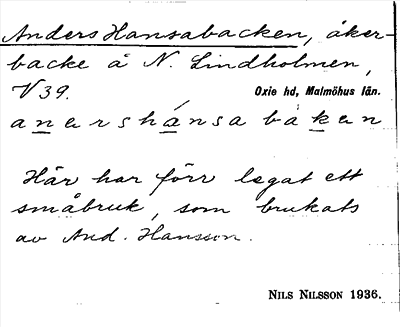 Anders Hansabacken, åker-
backe å N. Lindholmen,
V 39. Oxie hd, Malmöhus län.
anershánsa báken
Här har förr legat ett
småbruk, som brukats
av And. Hansson.
NILS NILSSON 1936.